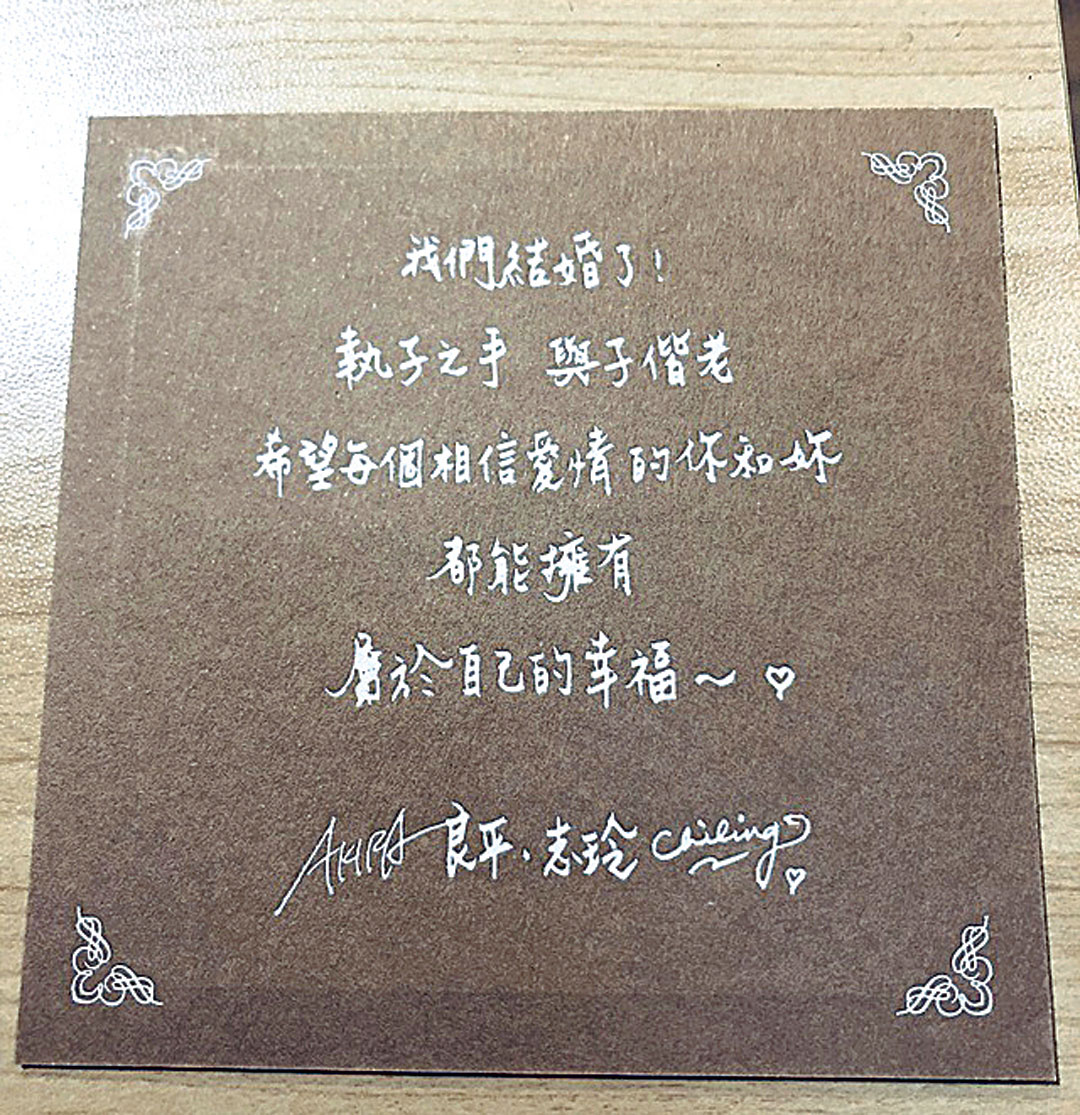 我們結婚了!
執子之手 與子偕老
希望每個相信愛情的你和妳
都能擁有
屬於自己的幸福~♡
AKIRA 良平、志玲 Chiling♡